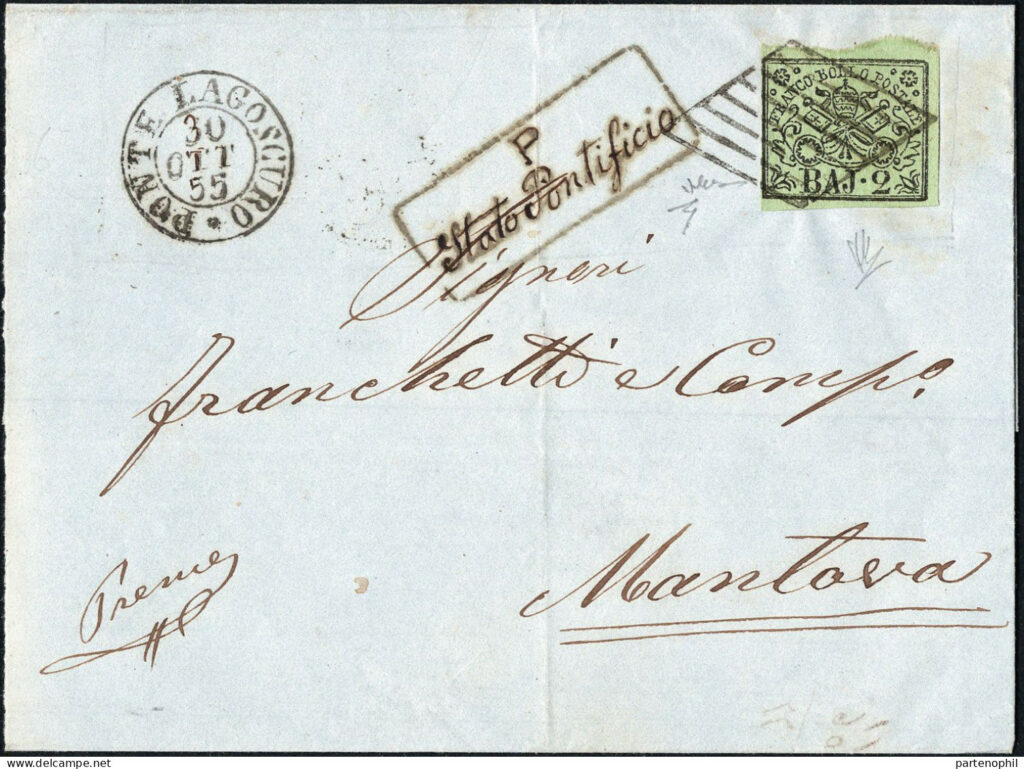 PONTE LAGOSCURO
30
OTT
55
P
Stato Pontificio
FRANCO BOLLO POSTALE
BAJ. 2
Signori
Franchetti e Comp.º
Mantova
Preme
partenophil